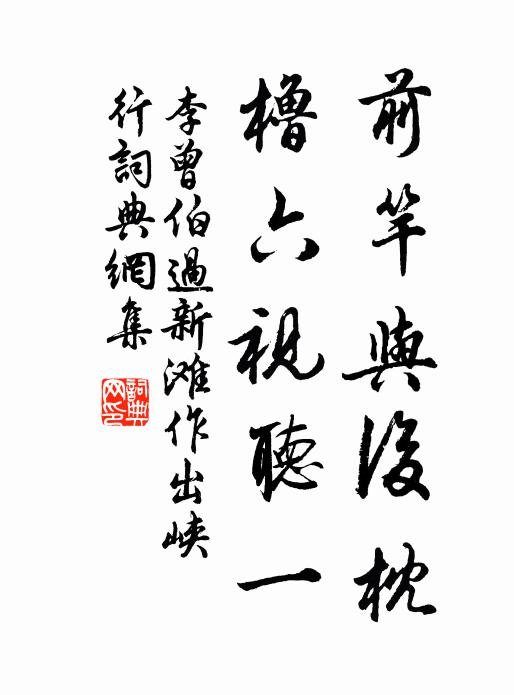 前竿與後枕
櫓六視聽一
李曾伯過新滩作出峽
行詞典網集
詞典
网印